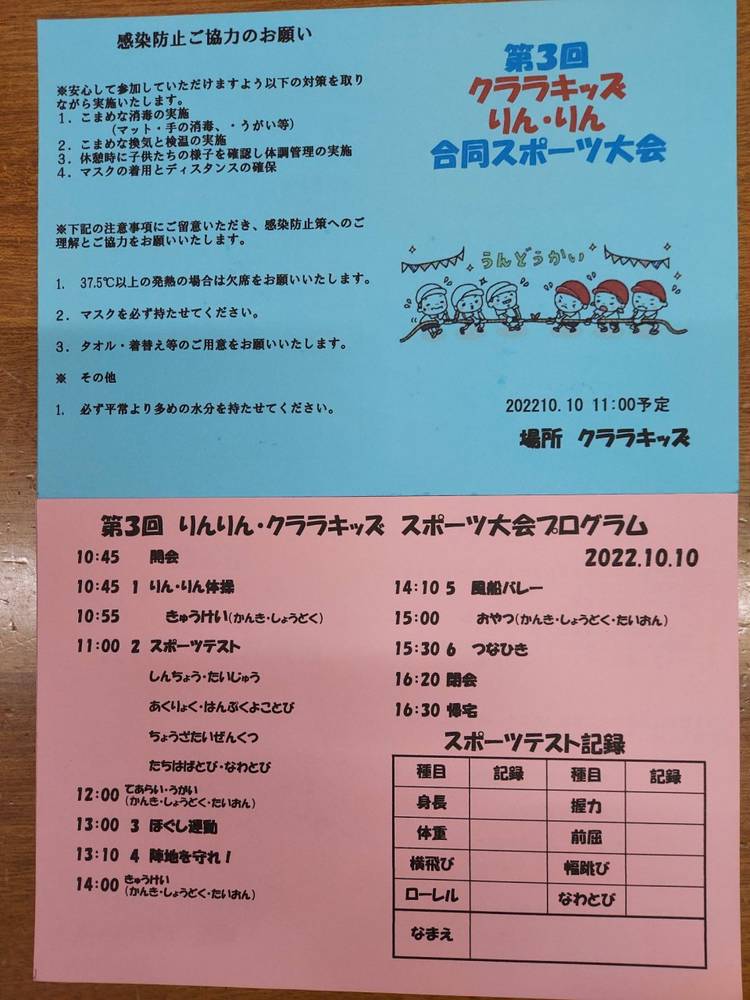 感染防止ご協力のお願い
※安心して参加していただけますよう以下の対策を取り
ながら実施いたします。
1. こまめな消毒の実施
(マット・手の消毒、・うがい等)
2. こまめな換気と検温の実施
3. 休憩時に子供たちの様子を確認し体調管理の実施
4. マスクの着用とディスタンスの確保
※下記の注意事項にご留意いただき、感染防止策へのご
理解とご協力をお願いいたします。
1. 37.5℃以上の発熱の場合は欠席をお願いいたします。
2. マスクを必ず持たせてください。
3. タオル・着替え等のご用意をお願いいたします。
※ その他
1. 必ず平常より多めの水分を持たせてください。
第3回
クララキッズ
りん・りん
合同スポーツ大会
うんどうかい
202210.10 11:00予定
場所 クララキッズ
第3回 りんりん・クララキッズ スポーツ大会プログラム
2022.10.10
10:45 開会
10:45 1 りん・りん体操
10:55 きゅうけい(かんき・しょうどく)
11:00 2 スポーツテスト
しんちょう・たいじゅう
あくりょく・はんぷくよことび
ちょうざたいぜんくつ
たちはばとび・なわとび
12:00 てあらい・うがい
(かんき・しょうどく・たいおん)
13:00 3 ほぐし運動
13:10 4 陣地を守れ!
14:00 きゅうけい
(かんき・しょうどく・たいおん)
14:10 5 風船バレー
15:00 おやつ(かんき・しょうどく・たいおん)
15:30 6 つなひき
16:20 閉会
16:30 帰宅
スポーツテスト記録
種目 記録 種目 記録
身長 握力
体重 前屈
横飛び 幅跳び
ローレル なわとび
なまえ